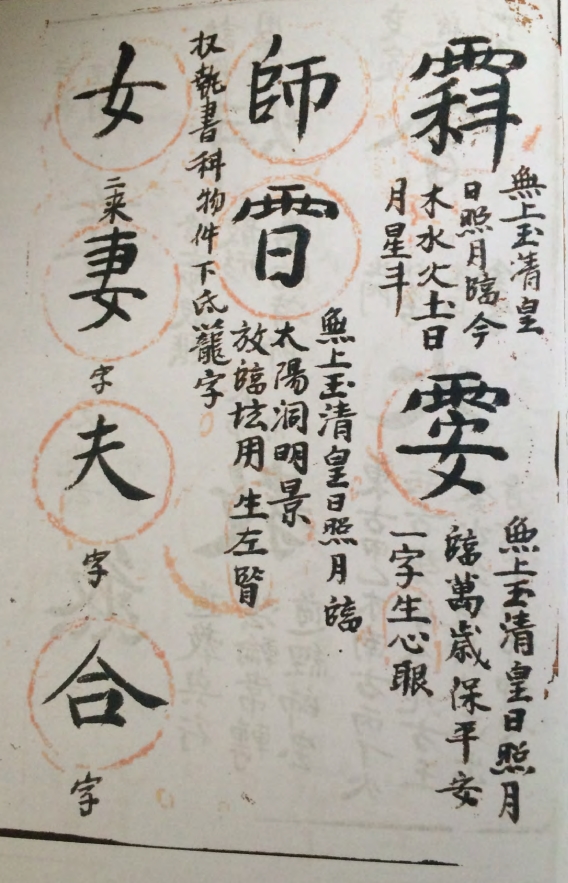 無上玉清皇
日照月臨今
木水火土日
月星斗
無上玉清皇日照月
臨萬歲保平安
一字生心眼
師
無上玉清皇日照月臨
太陽洞明景
放臨坛用 生左腎
収執書科物件下籠字
女
二来
妻
字
夫
字
合
字